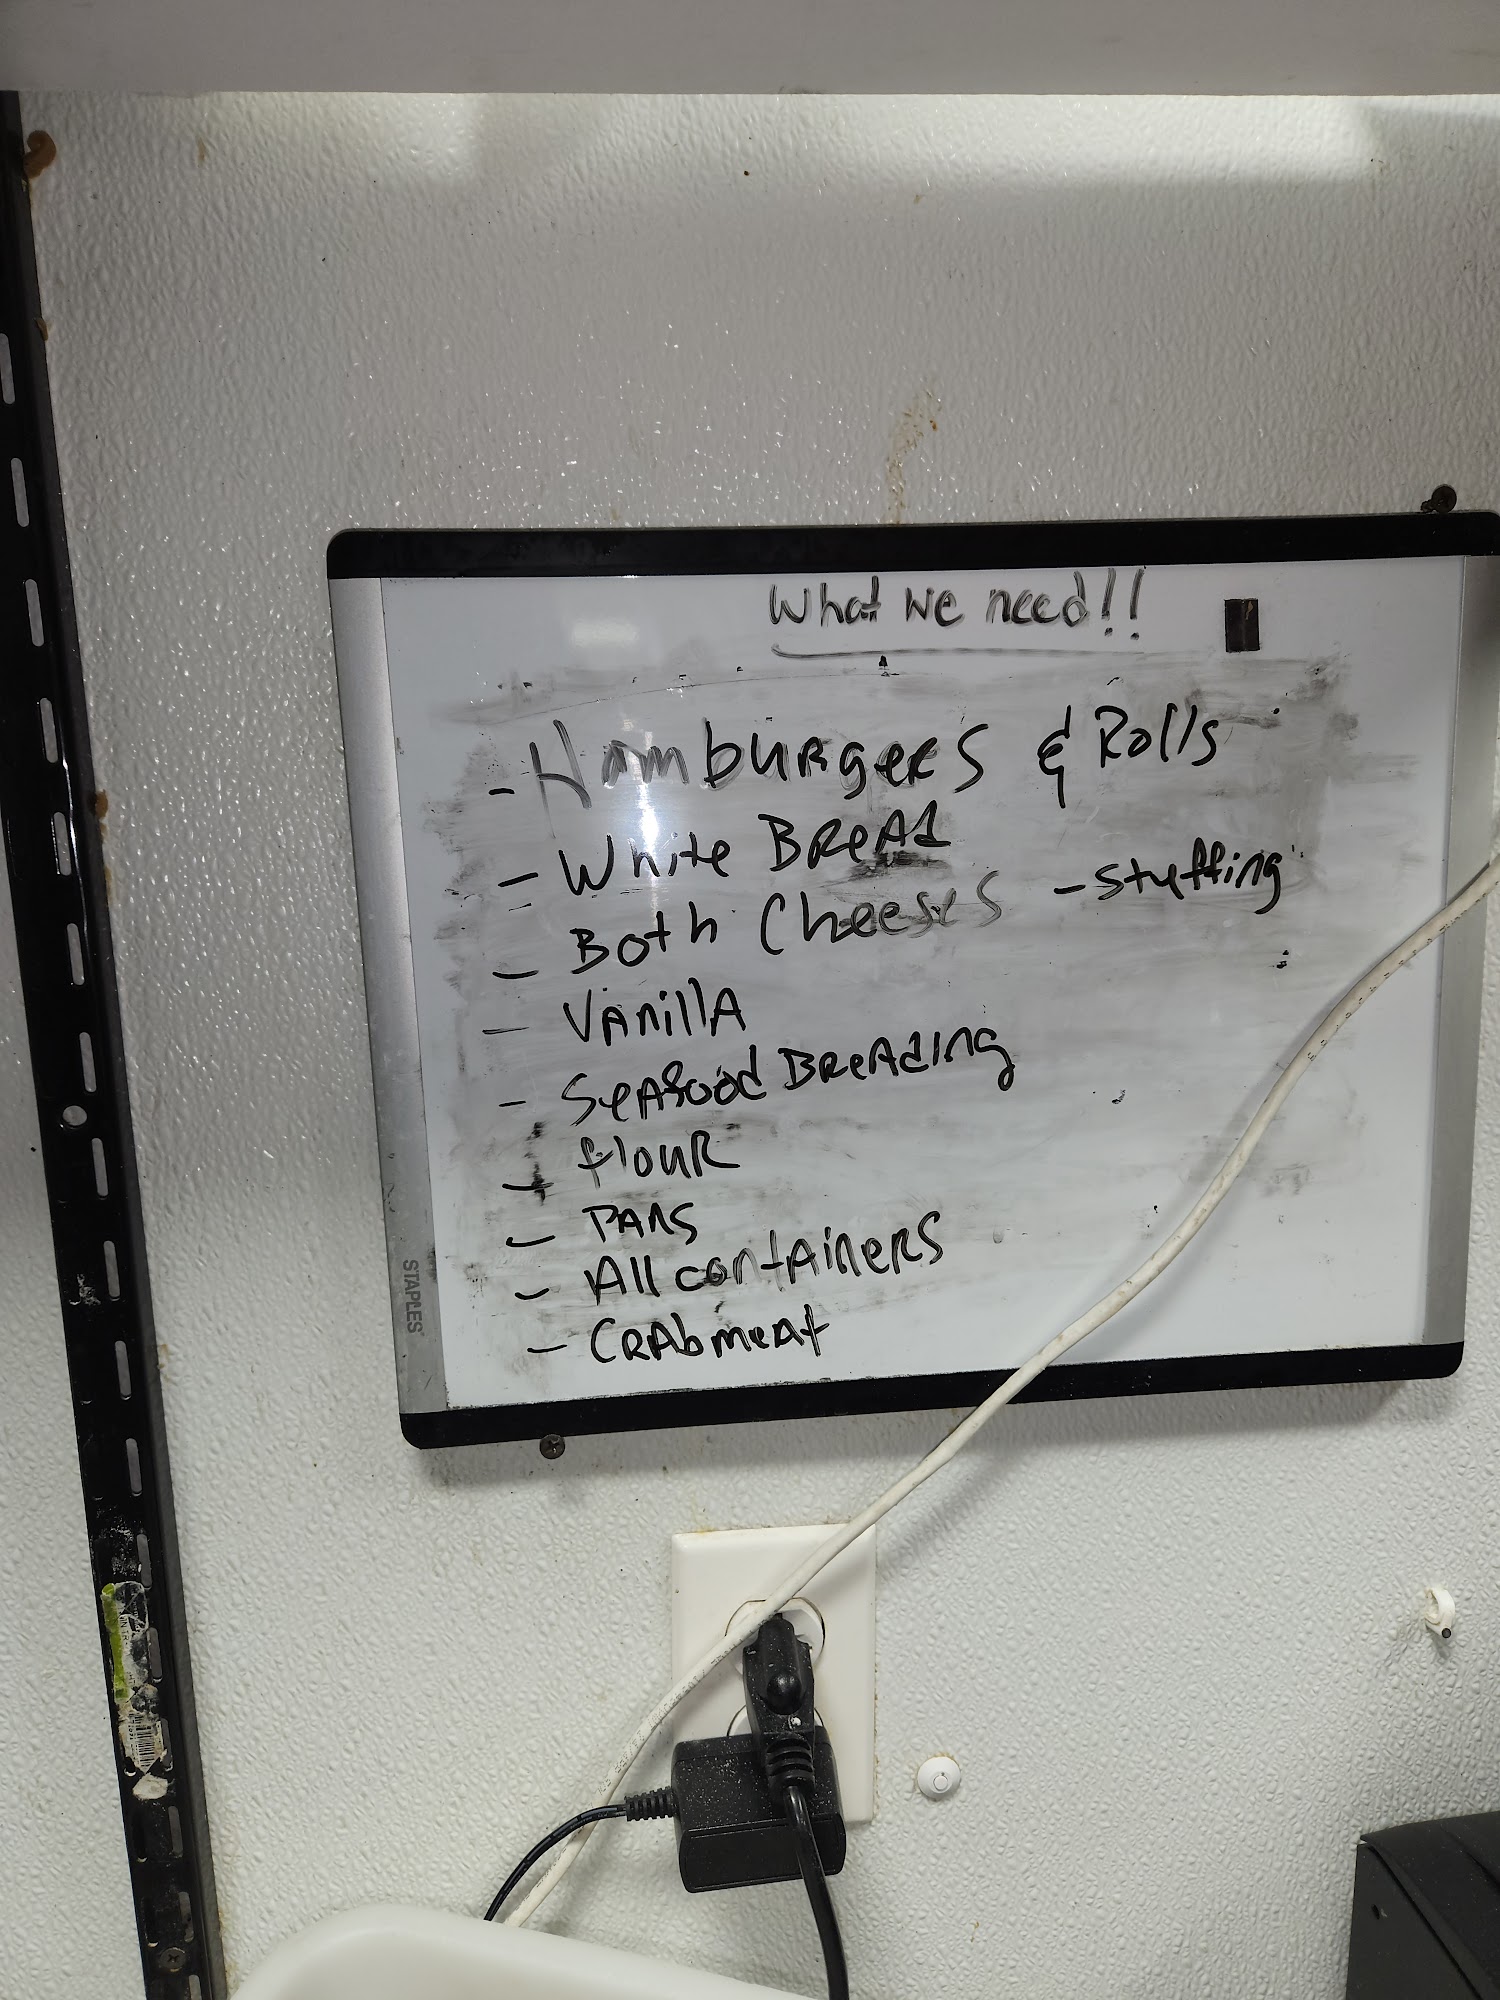 What we need!!
- Hamburgers & Rolls
- White Bread
- Both Cheeses - stuffing
- Vanilla
- Seafood Breading
- flour
- Pans
- All containers
- Crabmeat
STAPLES